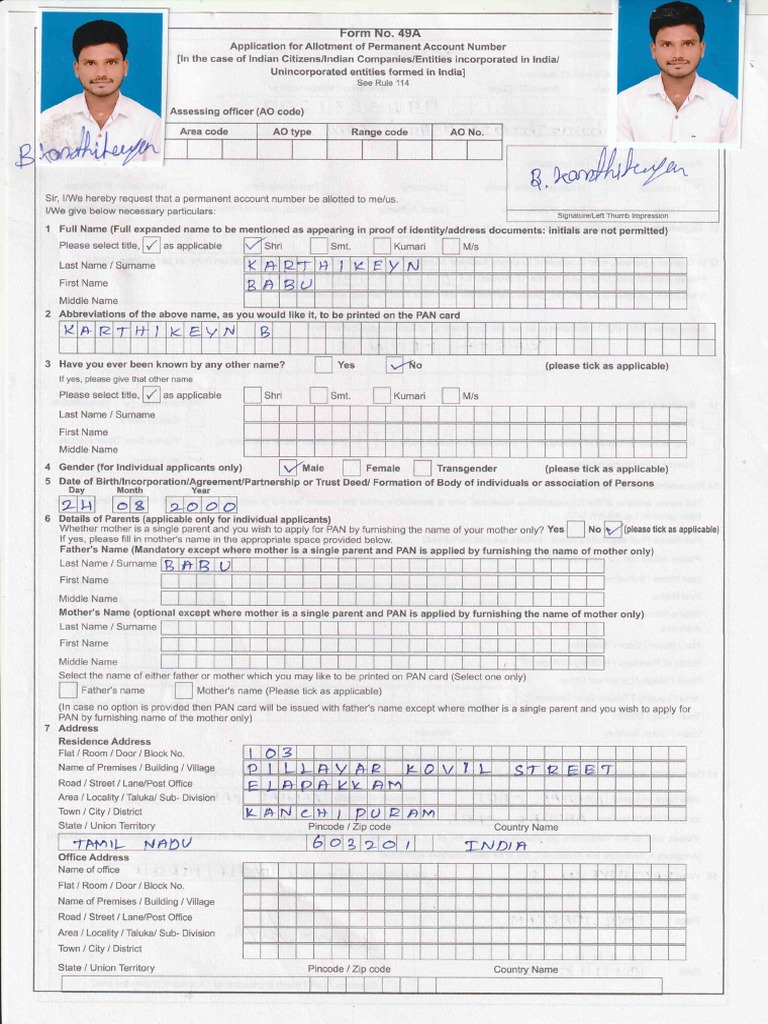 Form No. 49A
Application for Allotment of Permanent Account Number
[In the case of Indian Citizens/Indian Companies/Entities incorporated in India/
Unincorporated entities formed in India]
See Rule 114
Assessing officer (AO code)
Area code AO type Range code AO No.
B. Karthikeyan
B. Karthikeyan
Signature/Left Thumb Impression
Sir, I/We hereby request that a permanent account number be allotted to me/us.
I/We give below necessary particulars:
1 Full Name (Full expanded name to be mentioned as appearing in proof of identity/address documents: initials are not permitted)
Please select title, ✓ as applicable ✓ Shri Smt. Kumari M/s
Last Name / Surname KARTHIKEYN
First Name BABU
Middle Name
2 Abbreviations of the above name, as you would like it, to be printed on the PAN card
KARTHIKEYN B
3 Have you ever been known by any other name? Yes ✓ No (please tick as applicable)
If yes, please give that other name
Please select title, ✓ as applicable Shri Smt. Kumari M/s
Last Name / Surname
First Name
Middle Name
4 Gender (for Individual applicants only) ✓ Male Female Transgender (please tick as applicable)
5 Date of Birth/Incorporation/Agreement/Partnership or Trust Deed/ Formation of Body of individuals or association of Persons
Day Month Year
24 08 2000
6 Details of Parents (applicable only for individual applicants)
Whether mother is a single parent and you wish to apply for PAN by furnishing the name of your mother only? Yes No ✓ (please tick as applicable)
If yes, please fill in mother's name in the appropriate space provided below.
Father's Name (Mandatory except where mother is a single parent and PAN is applied by furnishing the name of mother only)
Last Name / Surname BABU
First Name
Middle Name
Mother's Name (optional except where mother is a single parent and PAN is applied by furnishing the name of mother only)
Last Name / Surname
First Name
Middle Name
Select the name of either father or mother which you may like to be printed on PAN card (Select one only)
Father's name Mother's name (Please tick as applicable)
(In case no option is provided then PAN card will be issued with father's name except where mother is a single parent and you wish to apply for
PAN by furnishing name of the mother only)
7 Address
Residence Address
Flat / Room / Door / Block No. 103
Name of Premises / Building / Village PILLAYAR KOVIL STREET
Road / Street / Lane/Post Office ELAPAKKAM
Area / Locality / Taluka/ Sub- Division
Town / City / District KANCHIPURAM
State / Union Territory Pincode / Zip code Country Name
TAMIL NADU 603201 INDIA
Office Address
Name of office
Flat / Room / Door / Block No.
Name of Premises / Building / Village
Road / Street / Lane/Post Office
Area / Locality / Taluka/ Sub- Division
Town / City / District
State / Union Territory Pincode / Zip code Country Name